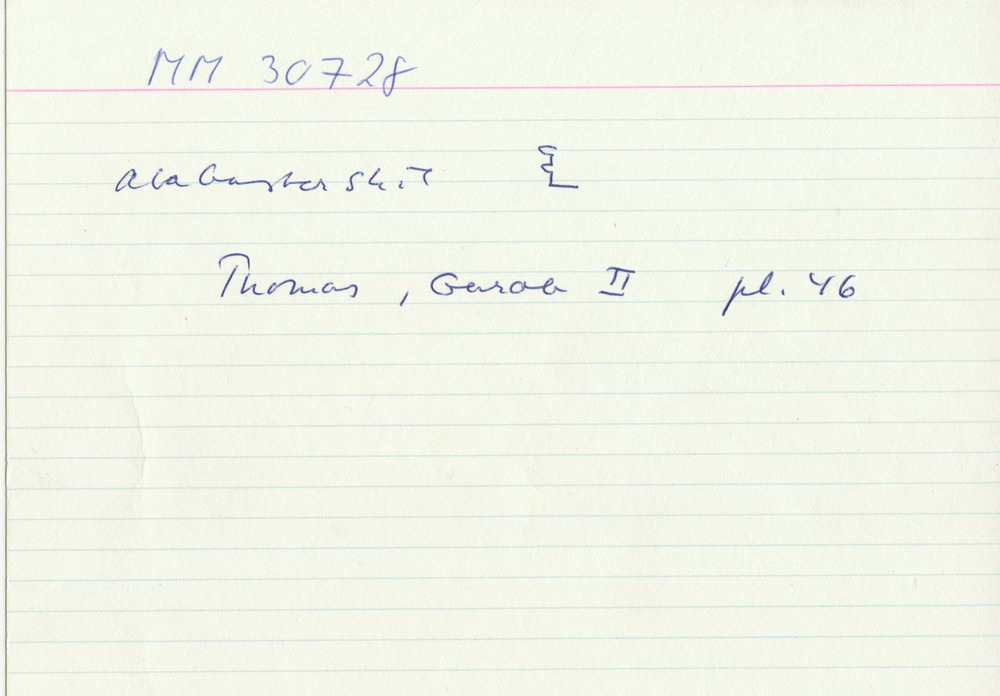 MM 30728
alabasterskål
Thomas, Gurob II pl. 46